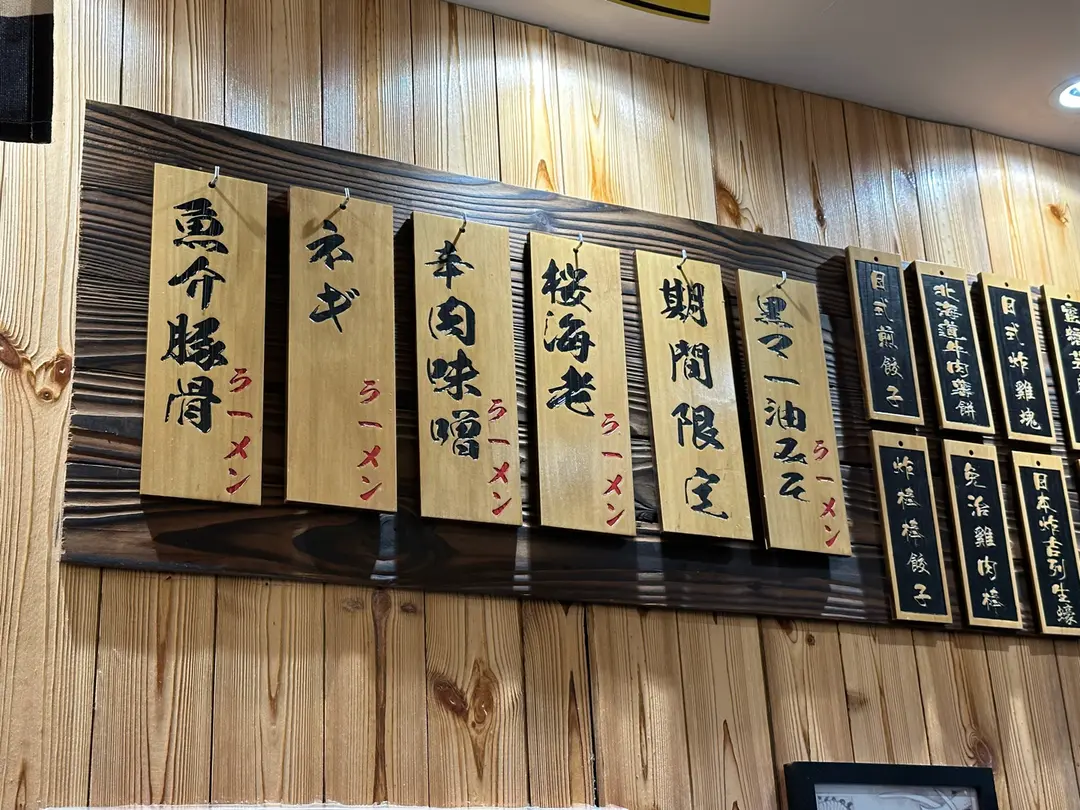 魚介豚骨
ラーメン
ネギ
ラーメン
辛肉味噌
ラーメン
桜海老
ラーメン
期間限定
黒マー油みそ
ラーメン
日式煎餃子
北海道牛肉薯餅
日式炸雞塊
炸棒棒餃子
免治雞肉棒
日本炸吉列生蠔